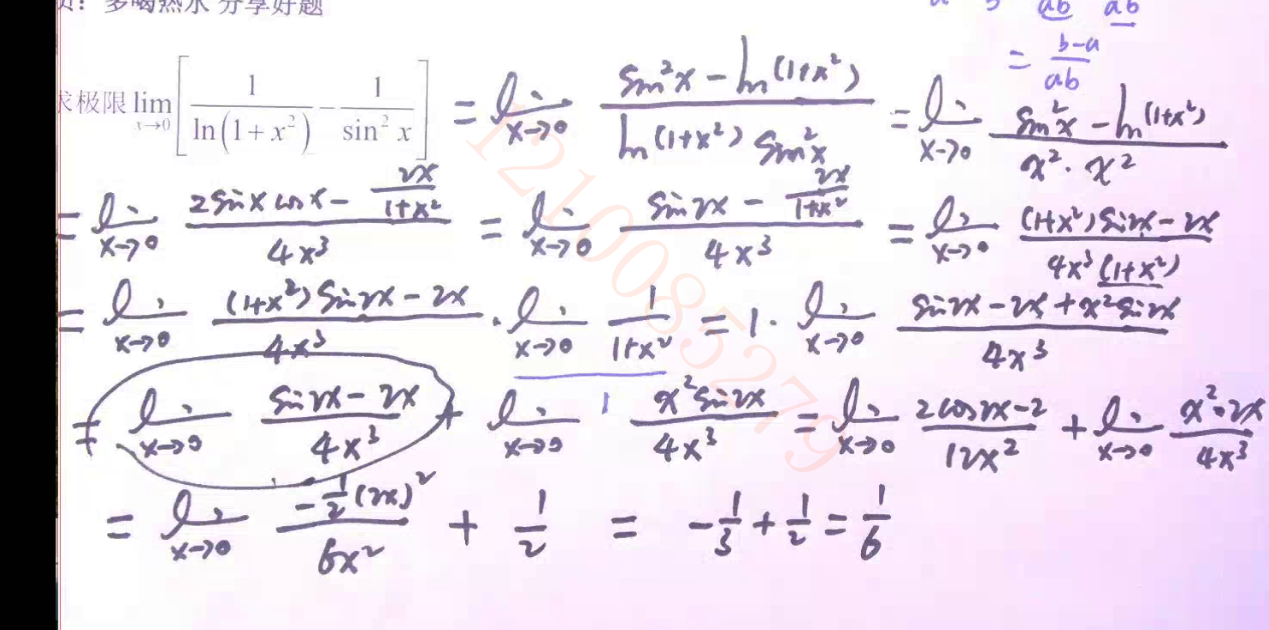 ：多喝热水 分享好题
ab ab
= (b-a)/(ab)
求极限 lim x→0 [ 1/ln(1+x²) − 1/sin² x ] = lim x→0 (sin²x − ln(1+x²))/(ln(1+x²) sin²x) = lim x→0 (sin²x − ln(1+x²))/(x²·x²)
= lim x→0 (2sinx cosx − 2x/(1+x²))/(4x³) = lim x→0 (sin2x − 2x/(1+x²))/(4x³) = lim x→0 ((1+x²)sin2x − 2x)/(4x³(1+x²))
= lim x→0 ((1+x²)sin2x − 2x)/(4x³) · lim x→0 1/(1+x²) = 1· lim x→0 (sin2x − 2x + x²sin2x)/(4x³)
= lim x→0 (sin2x − 2x)/(4x³) + lim x→0 (x²sin2x)/(4x³) = lim x→0 (2cos2x − 2)/(12x²) + lim x→0 (x²·2x)/(4x³)
= lim x→0 (−1/2 (2x)²)/(6x²) + 1/2 = −1/3 + 1/2 = 1/6
1210085279